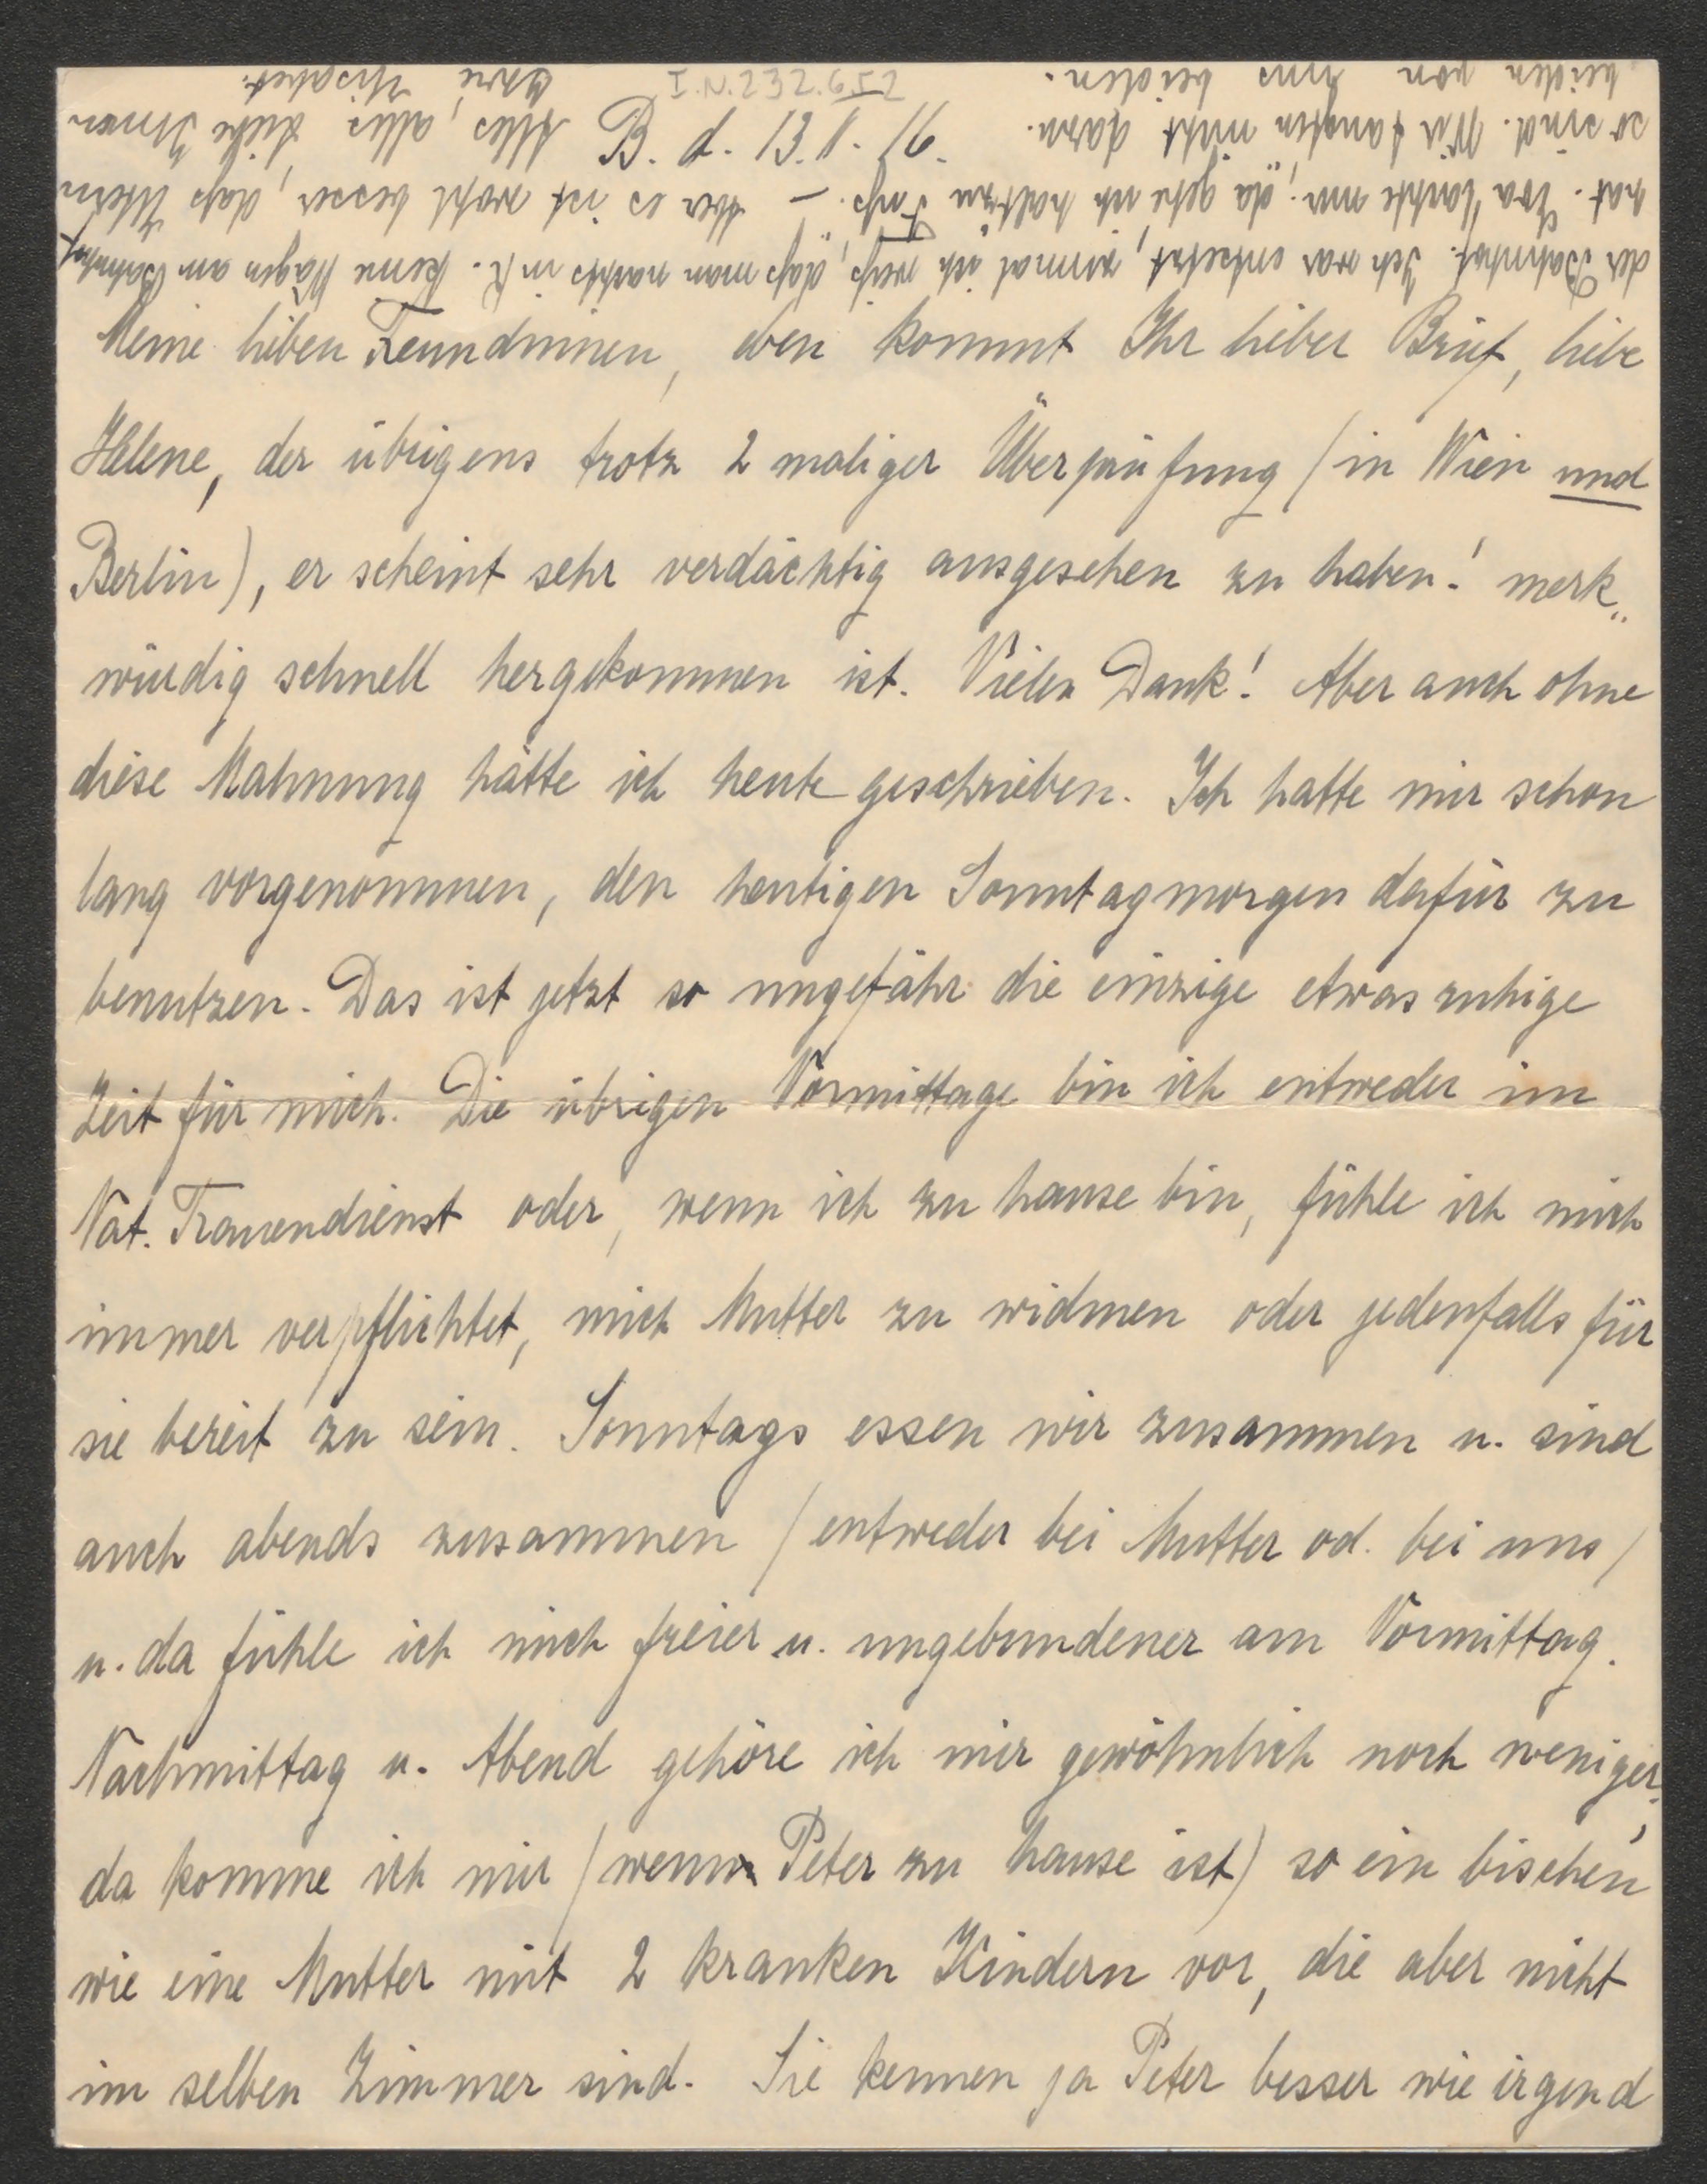 I.N.232.652
B. d. 13.II.16.
Meine lieben Freundinnen, eben kommt Ihr lieber Brief, liebe
Helene, der übrigens trotz 2 maliger Überprüfung (in Wien und
Berlin), er scheint sehr verdächtig ausgesehen zu haben! merk„
würdig schnell hergekommen ist. Vielen Dank! Aber auch ohne
diese Mahnung hätte ich heute geschrieben. Ich hatte mir schon
lang vorgenommen, den heutigen Sonntagmorgen dafür zu
benutzen. Das ist jetzt so ungefähr die einzige etwas ruhige
Zeit für mich. Die übrigen Vormittage bin ich entweder im
Nat. Frauendienst oder, wenn ich zu hause bin, fühle ich mich
immer verpflichtet, mich Mutter zu widmen oder jedenfalls für
sie bereit zu sein. Sonntags essen wir zusammen u. sind
auch abends zusammen (entweder bei Mutter od. bei uns)
u. da fühle ich mich freier u. ungebundener am Vormittag.
Nachmittag u. Abend gehöre ich mir gewöhnlich noch weniger,
da komme ich mir (wenn Peter zu hause ist) so ein bischen
wie eine Mutter mit 2 kranken Kindern vor, die aber nicht
im selben Zimmer sind. Sie kennen ja Peter besser wie irgend
der Bahnhof. Ich war entsetzt, zumal ich weiß, daß man nachts in K. keine Wagen am Bahnhof
hat. Eva lachte nur: „da gehe ich halt zu Fuß". — Aber es ist wohl besser, daß
so sind. Wir taugten nicht dazu. Alles, alles Liebe Ihnen
beiden von uns beiden. Ihre Lisabet.